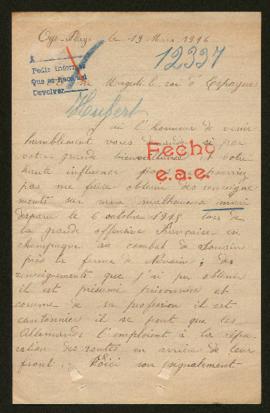 le 19 Mars 1916
A
Pedir informes
Devolver
12337
Sa Majesté le roi d'Espagne
Hubert
J'ai l'honneur de venir
humblement vous demander si par
votre grande bienveillance et votre
haute influence vous pourriez
pas me faire obtenir des renseigne
ments sur mon malheureux mari
disparu le 6 octobre 1915 lors de
la grande offensive française en
champagne au combat de Souain
près la ferme de Navarin ; des
renseignements que j'ai pu obtenir
il est présumé prisonnier et
comme de sa profession il est
cantonnier il se peut que des
Allemands l'emploient à la répa
ration des routes en arrière de leur
front. Voici son signalement
Fecho
e.a.e.